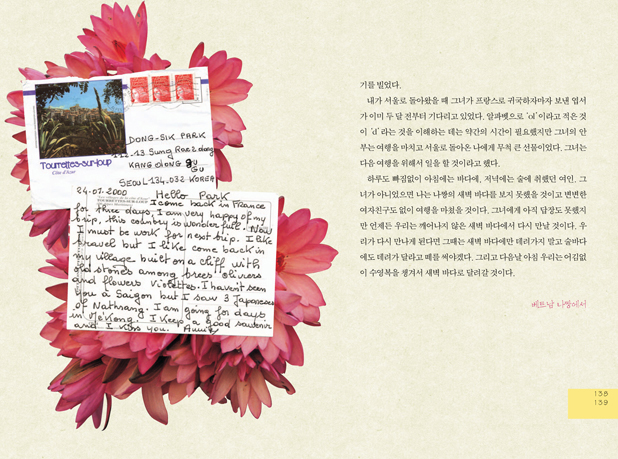 DONG-SIK PARK
Tourrettes-sur-loup
Côte d'Azur
KANG dong gu
GU
SEOUL-134.032 KOREA
24.07.2000 Hello Park
I come back in France
for three days, I am very happy of my
trip, this country is wonderfull. Now
I must be work for next trip. I like
travel but I like come back in
my village built on a cliff with
old stones among trees "olivers
and flowers violettes. I haven't seen
you à Saigon but I saw 3 Japaneses
of Nathrang. I am going for days
in Mékong! I keep a good souvenir
and I kiss you. Annie
기를 빌었다.
내가 서울로 돌아왔을 때 그녀가 프랑스로 귀국하자마자 보낸 엽서
가 이미 두 달 전부터 기다리고 있었다. 알파벳으로 'ol'이라고 적은 것
이 'd'라는 것을 이해하는 데는 약간의 시간이 필요했지만 그녀의 안
부는 여행을 마치고 서울로 돌아온 나에게 무척 큰 선물이었다. 그녀는
다음 여행을 위해서 일을 할 것이라고 했다.
하루도 빠짐없이 아침에는 바다에, 저녁에는 술에 취했던 여인. 그
녀가 아니었으면 나는 나짱의 새벽 바다를 보지 못했을 것이고 변변한
여자친구도 없이 여행을 마쳤을 것이다. 그녀에게 아직 답장도 못했지
만 언제든 우리는 깨어나지 않은 새벽 바다에서 다시 만날 것이다. 우
리가 다시 만나게 된다면 그때는 새벽 바다에만 데려가지 말고 술바다
에도 데려가 달라고 떼를 써야겠다. 그리고 다음날 아침 우리는 어김없
이 수영복을 챙겨서 새벽 바다로 달려갈 것이다.
베트남 나짱에서
138
139